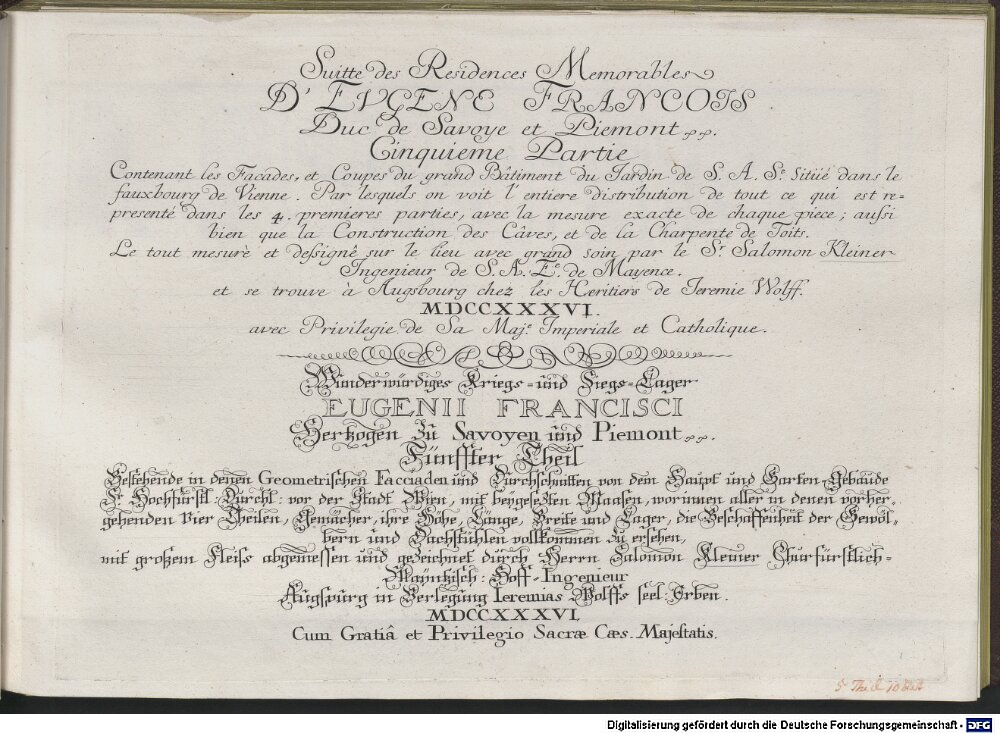 Suitte des Residences Memorables
D'EUGENE FRANCOIS
Duc de Savoye et Piemont
Cinquieme Partie
Contenant les Facades, et Coupes du grand Bâtiment du Jardin de S. A. Se. Situé dans le
fauxbourg de Vienne. Par lesquels on voit l'entiere distribution de tout ce qui est re=
presenté dans les 4. premieres parties, avec la mesure exacte de chaque piece; aussi
bien que la Construction des Câves, et de la Charpente de Toits.
Le tout mesuré et dessigné sur le lieu avec grand soin par le Sr. Salomon Kleiner
Ingenieur de S. A. Ee. de Mayence.
et se trouve à Augsbourg chez les Hæritiers de Jeremie Wolff.
MDCCXXXVI.
avec Privilegie de Sa Maje. Imperiale et Catholique.
Wunderwürdiges Kriegs- und Siegs-Lager
EUGENII FRANCISCI
Hertzogen zu Savoyen und Piemont
Fünffter Theil
Bestehende in denen Geometrischen Facciaden und Durchschnitten von dem Haupt und Garten-Gebäude
Sr. Hochfürstl: Durchl: vor der Stadt Wien, mit beygesezten Maasen, worinnen aller in denen vorher-
gehenden vier Theilen, Gemächer, ihre Höhe, Länge, Breite und Lager, die Beschaffenheit der Gewöl-
bern und Dachstühlen vollkommen zu ersehen,
mit großem Fleiss abgemessen und gezeichnet durch Herrn Salomon Kleiner Churfürstlich-
Mayntzisch: Hoff-Ingenieur
Augspurg in Verlegung Ieremias Wolffs seel: Erben.
MDCCXXXVI.
Cum Gratiâ et Privilegio Sacræ Cæs. Majestatis.
5 Theil 10 blat
Digitalisierung gefördert durch die Deutsche Forschungsgemeinschaft - DFG